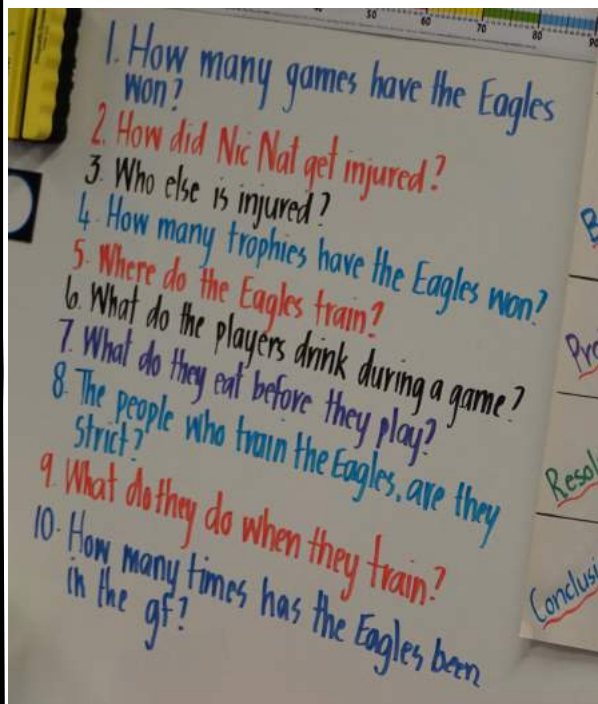 50 60 70 80 90
1. How many games have the Eagles
won?
2. How did Nic Nat get injured?
3. Who else is injured?
4. How many trophies have the Eagles won?
5. Where do the Eagles train?
6. What do the players drink during a game?
7. What do they eat before they play?
8. The people who train the Eagles, are they
strict?
9. What do they do when they train?
10. How many times has the Eagles been
in the gf?
B
Pro
Resol
Conclusi